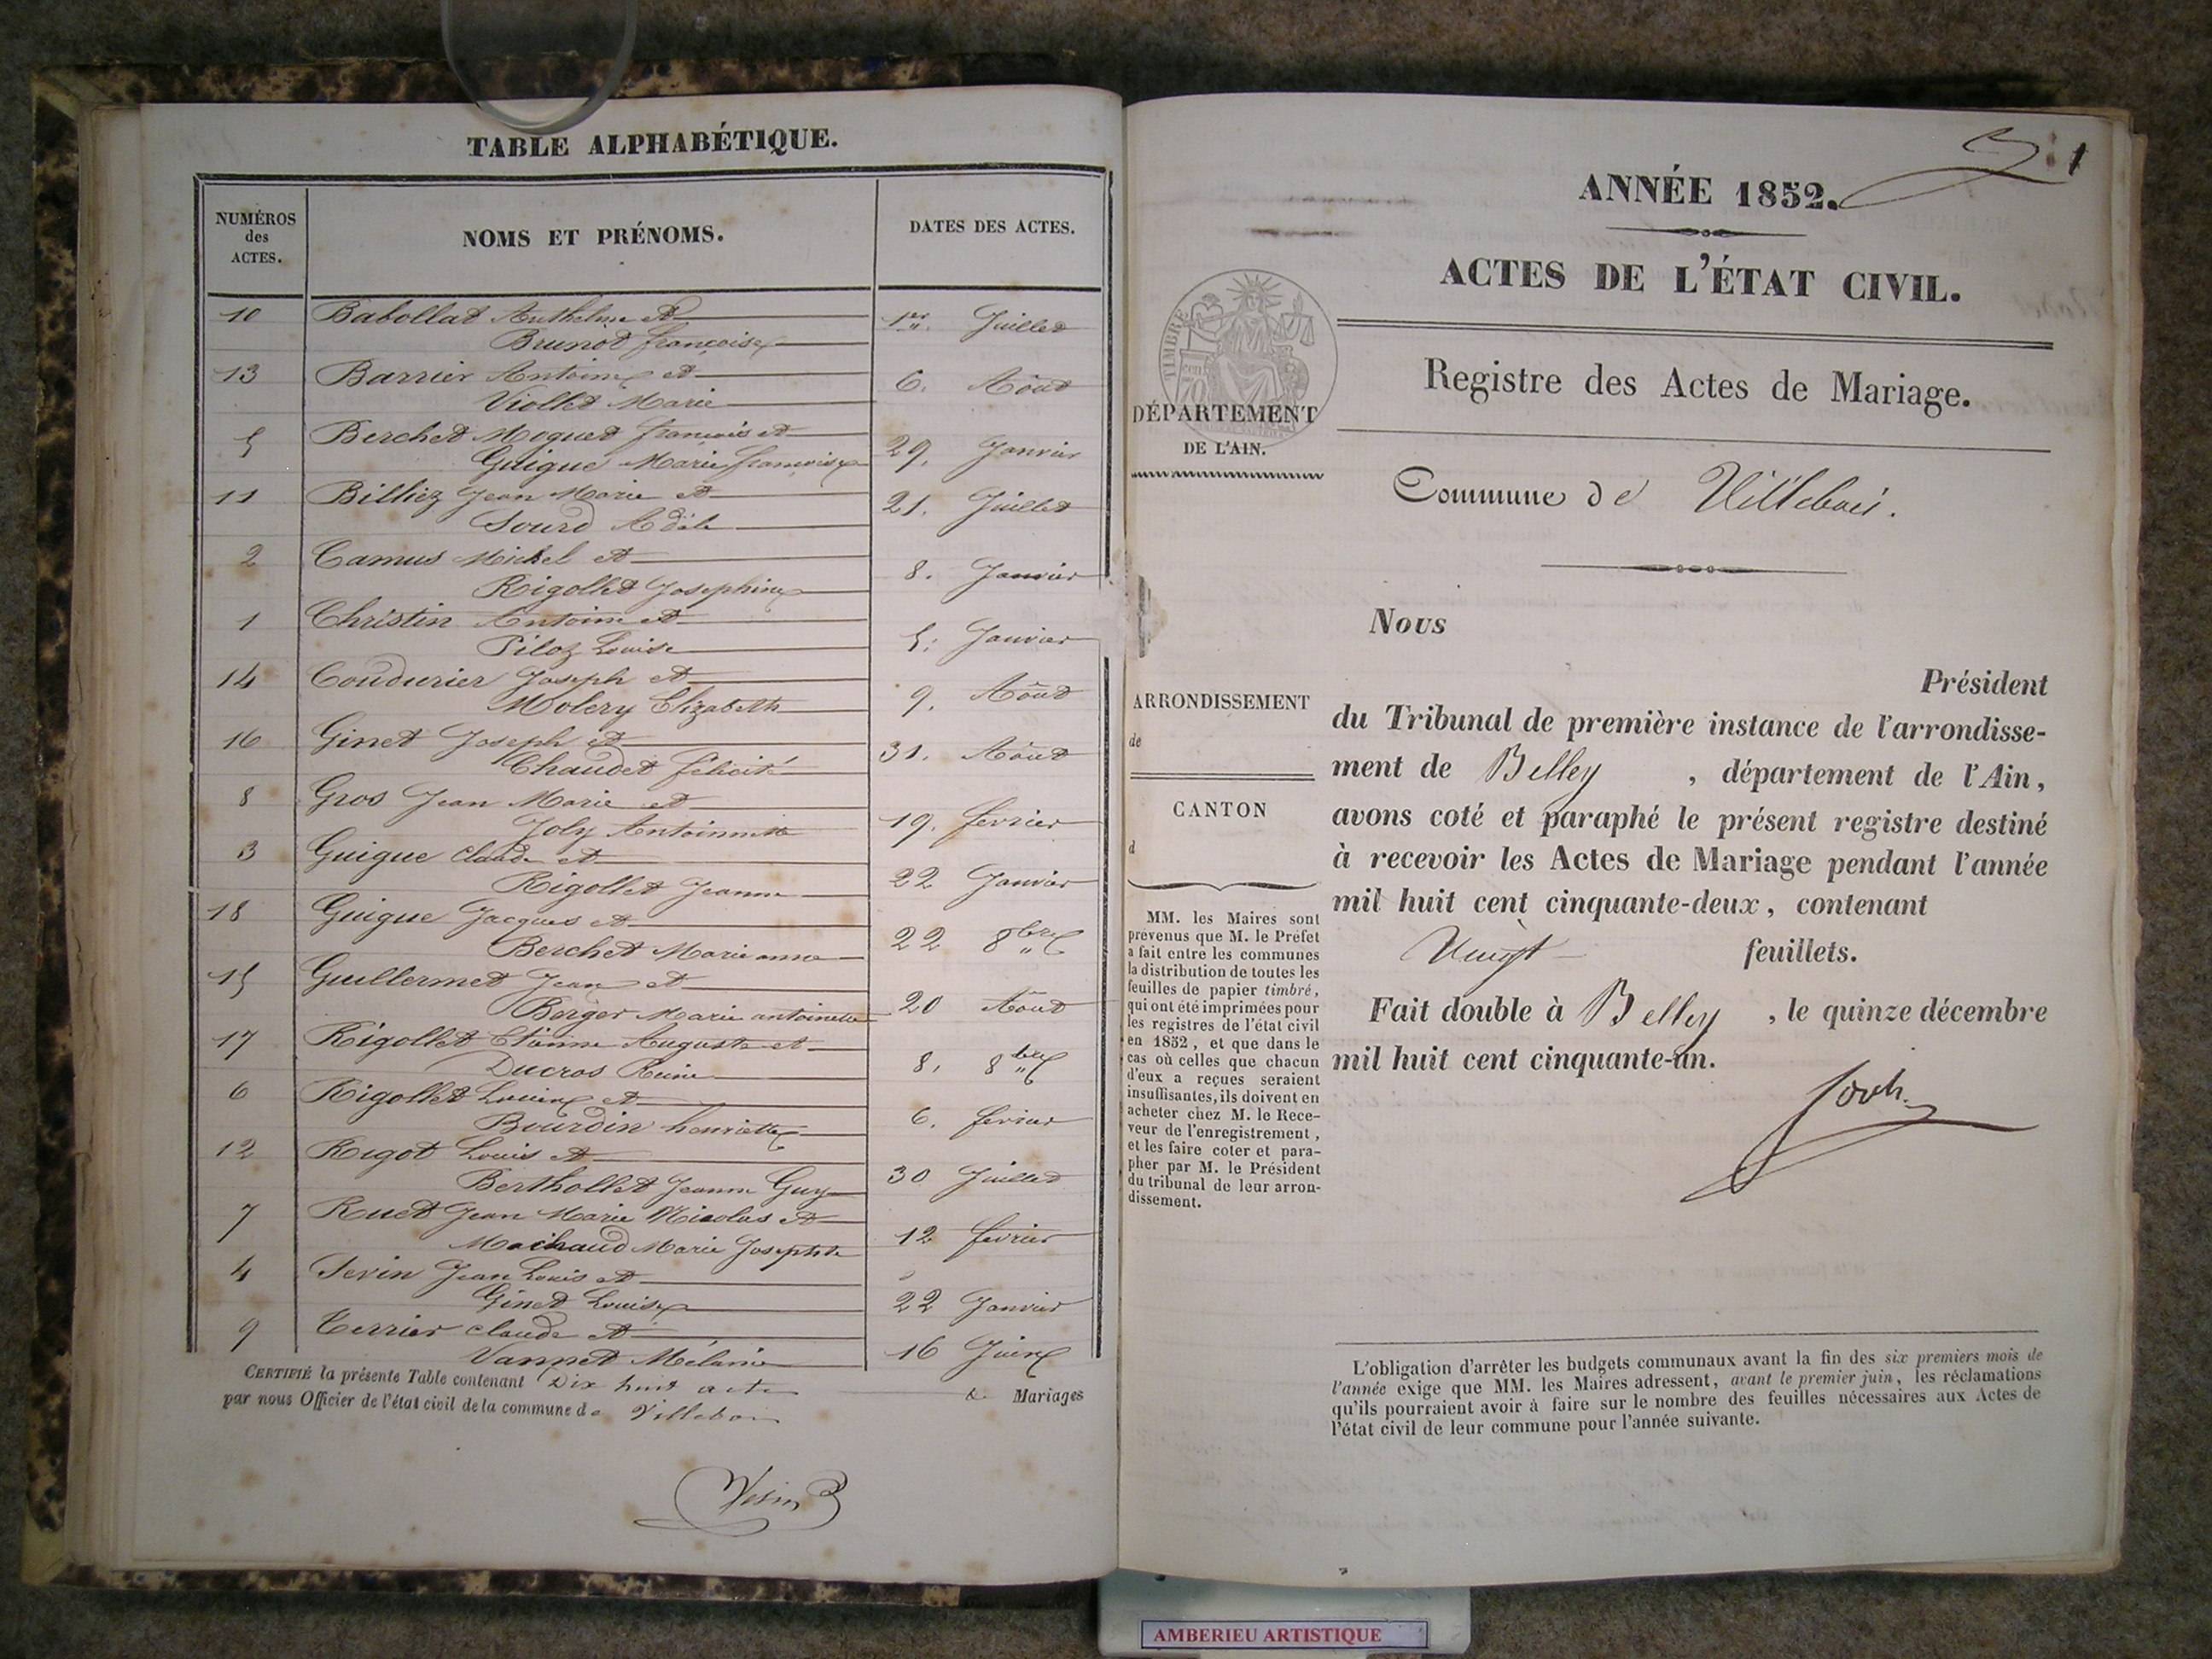 TABLE ALPHABÉTIQUE.
NUMÉROS des ACTES. NOMS ET PRÉNOMS. DATES DES ACTES.
10 Babollat Anthelme et
Brunot françoise 1er Juillet
13 Barrier Antoine et
Viollet Marie 6. Août
5 Berchet Moguet françois et
Guigue Marie françoise 29. Janvier
11 Billiez Jean Marie et
Sourd Adèle 21. Juillet
2 Camus Michel et
Rigollet Josephine 8. Janvier
1 Christin Antoine et
Piloz Louise 5. Janvier
14 Coudurier Joseph et
Molery Elizabeth 9. Août
16 Ginet Joseph et
Chaudet félicité 31. Août
8 Gros Jean Marie et
Joly Antoinette 19. fevrier
3 Guigue Claude et
Rigollet Jeanne 22 Janvier
18 Guigue Jacques et
Berchet Marie anne 22 8bre
15 Guillermet Jean et
Berger Marie antoinette 20 Août
17 Rigollet Etienne Auguste et
Ducros Reine 8. 8bre
6 Rigollet et
Bourdin henriette 6. fevrier
12 Rigot Louis et
Berthollet Jeanne Guy 30 Juillet
7 Ruet Jean Marie Nicolas et
Michaud Marie Josephte 12 fevrier
4 Sevin Jean Louis et
Ginet Louise 22 Janvier
9 Terrier Claude et
Vannet Mélanie 16 Juin
CERTIFIÉ la présente Table contenant Dix huit acte de Mariages
par nous Officier de l'état civil de la commune de Villebois
1
ANNÉE 1852.
ACTES DE L'ÉTAT CIVIL.
Registre des Actes de Mariage.
TIMBRE
70
DÉPARTEMENT
DE L'AIN.
Commune de Villebois.
Nous
Président
du Tribunal de première instance de l'arrondisse-
ment de Belley , département de l'Ain,
avons coté et paraphé le présent registre destiné
à recevoir les Actes de Mariage pendant l'année
mil huit cent cinquante-deux, contenant
Vingt feuillets.
Fait double à Belley , le quinze décembre
mil huit cent cinquante-un.
ARRONDISSEMENT
de
CANTON
d
MM. les Maires sont
prévenus que M. le Préfet
a fait entre les communes
la distribution de toutes les
feuilles de papier timbré,
qui ont été imprimées pour
les registres de l'état civil
en 1852, et que dans le
cas où celles que chacun
d'eux a reçues seraient
insuffisantes, ils doivent en
acheter chez M. le Rece-
veur de l'enregistrement,
et les faire coter et para-
pher par M. le Président
du tribunal de leur arron-
dissement.
L'obligation d'arrêter les budgets communaux avant la fin des six premiers mois de
l'année exige que MM. les Maires adressent, avant le premier juin, les réclamations
qu'ils pourraient avoir à faire sur le nombre des feuilles nécessaires aux Actes de
l'état civil de leur commune pour l'année suivante.
AMBERIEU ARTISTIQUE